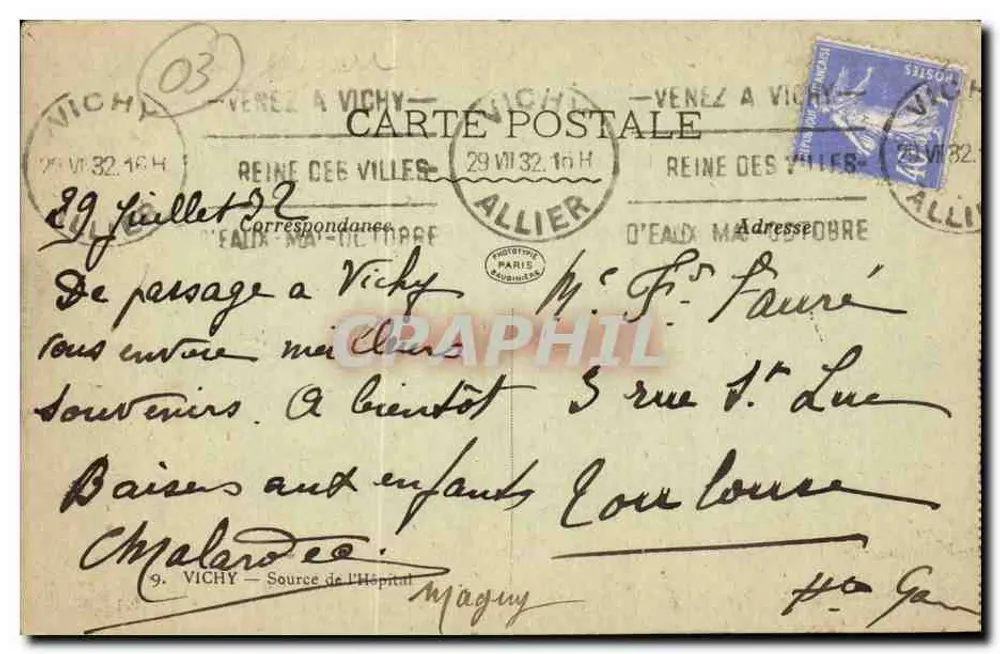 03
VICHY
29 VII 32. 16 H
ALLIER
VENEZ A VICHY
REINE DES VILLES
D'EAUX MAI-OCTOBRE
VICHY
29 VII 32. 16 H
ALLIER
VENEZ A VICHY
REINE DES VILLES
D'EAUX MAI-OCTOBRE
VICHY
29 VII 32.
ALLIE
REPUBLIQUE FRANÇAISE
POSTES
40
CARTE POSTALE
Correspondance
Adresse
PHOTOTYPIE
PARIS
BAUDINIERE
29 Juillet 32
De passage a Vichy
vous envoie meilleurs
souvenirs. A bientôt
Baisers aux enfants
Magny
Mr Fr. Fauré
3 rue St Luc
Toulouse
Hte Gar
9. VICHY — Source de l'Hôpital
CRAPHIL